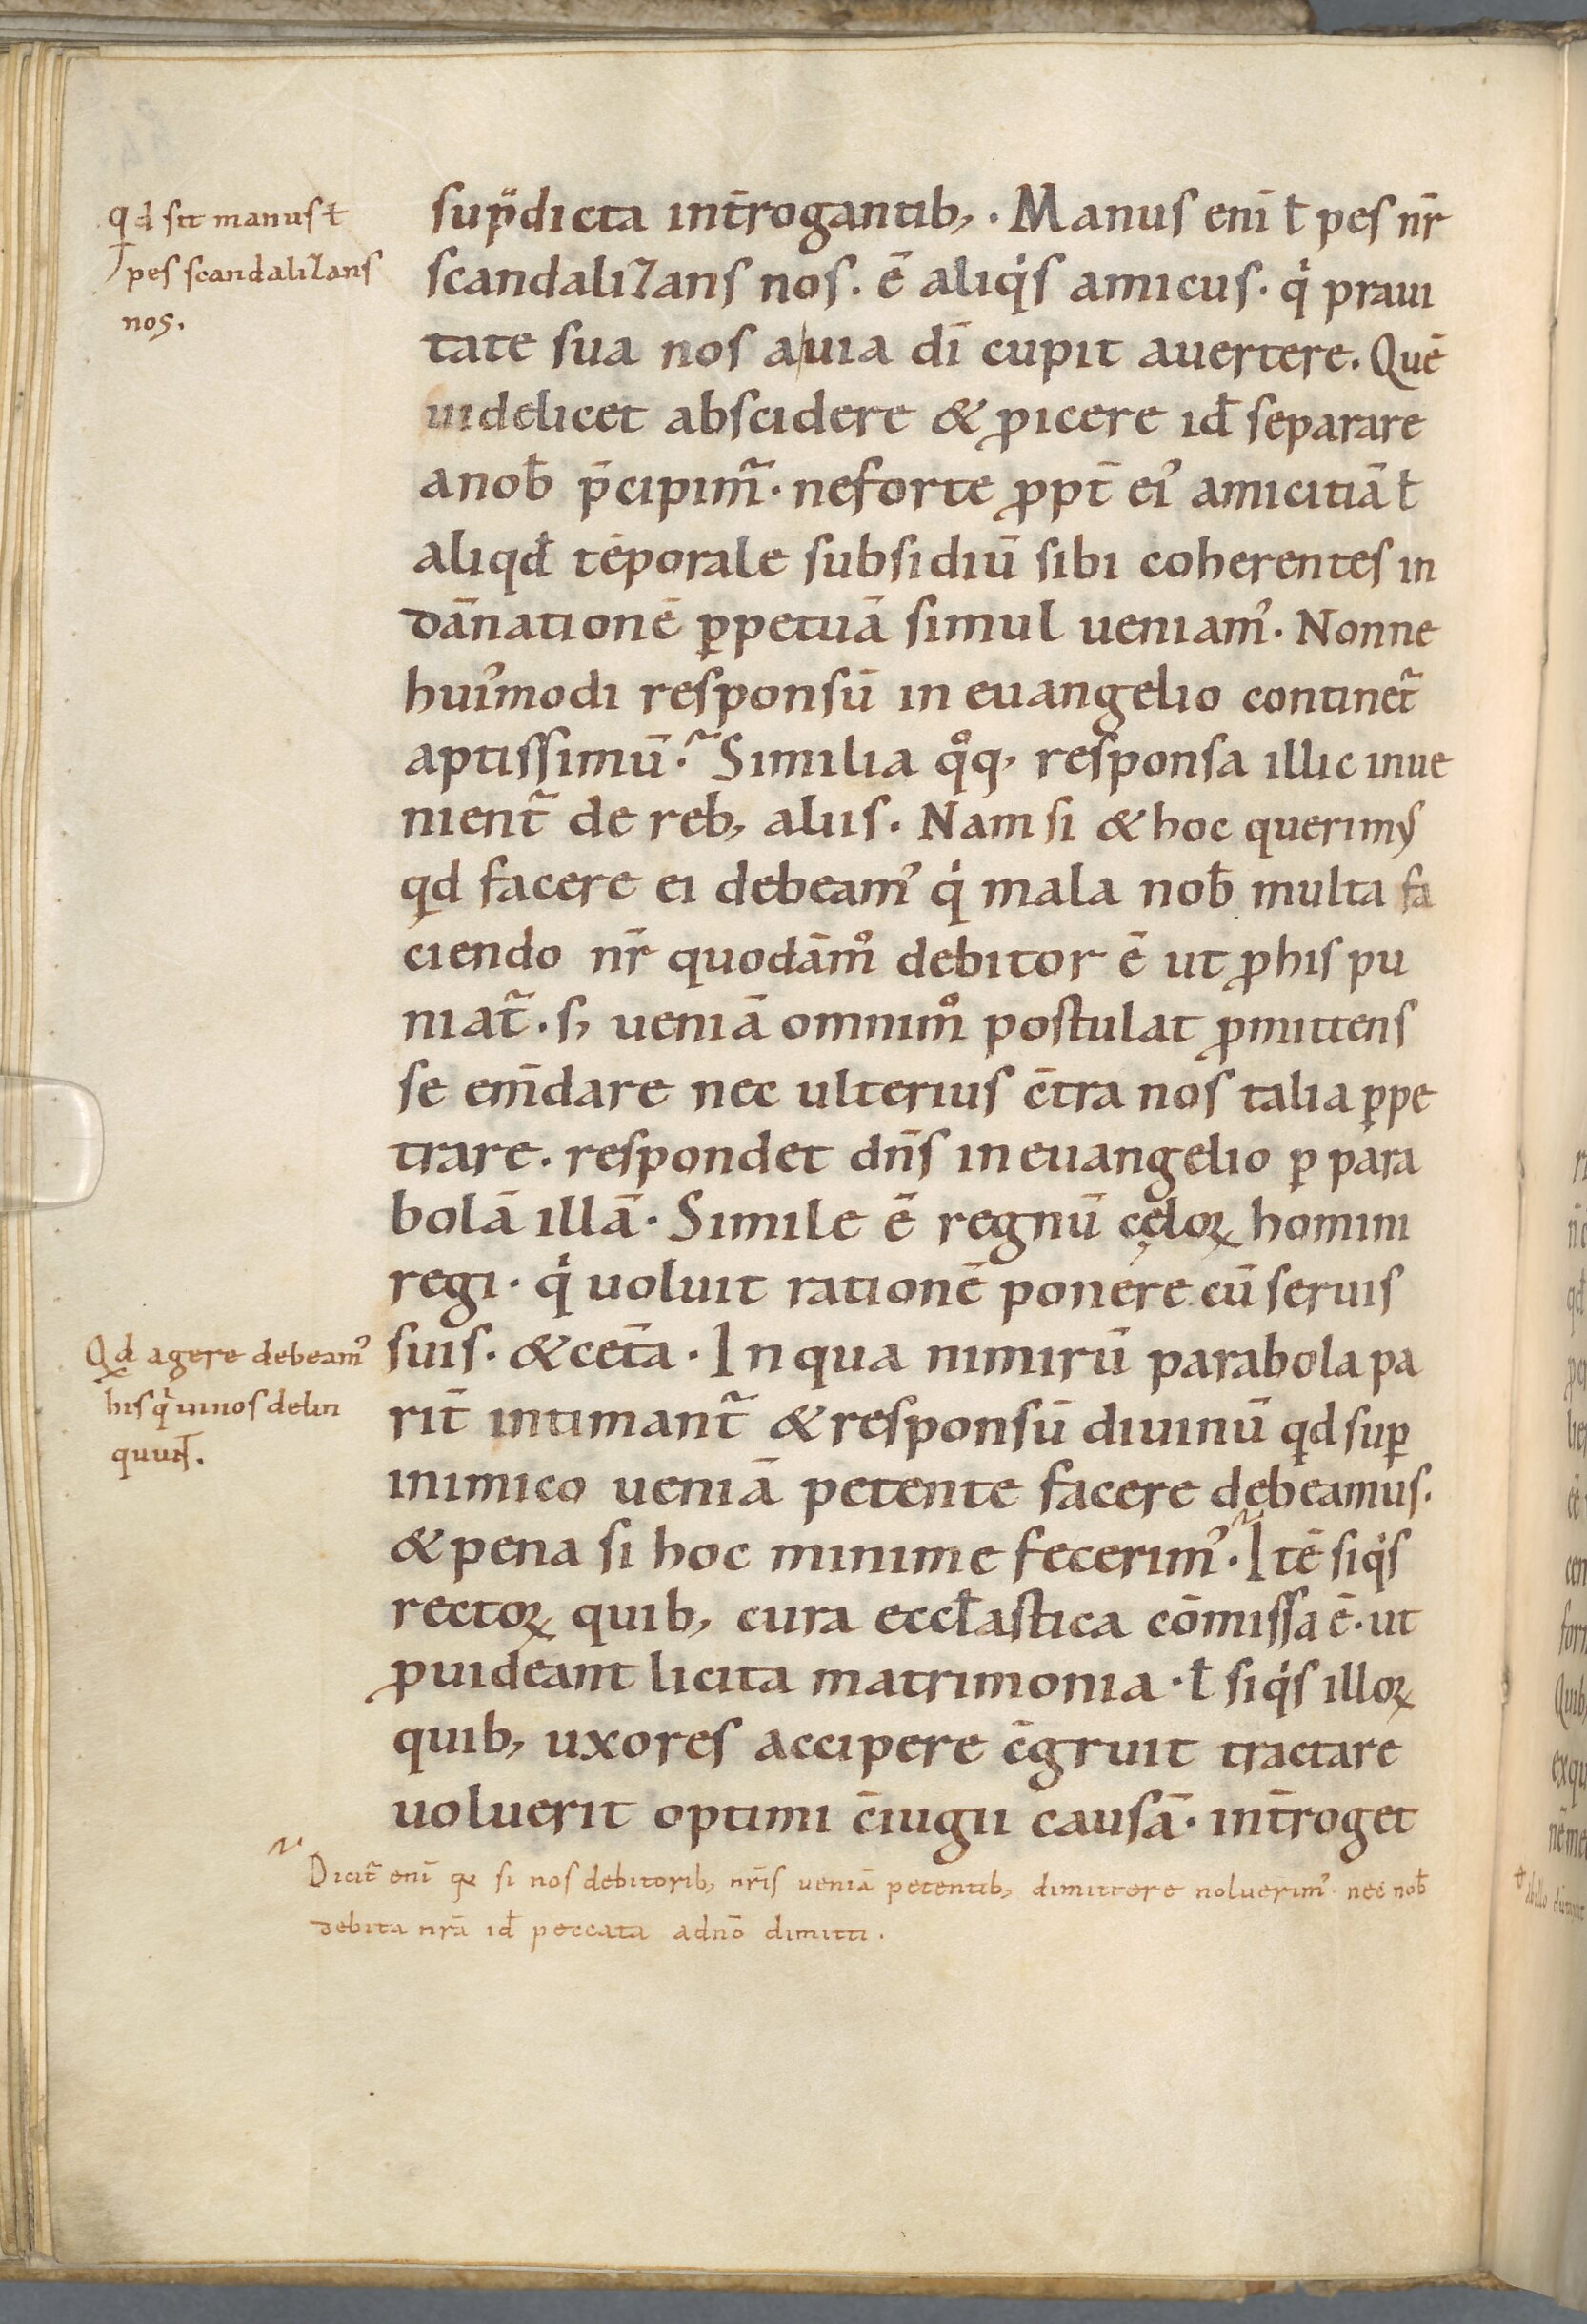 qd sit manus ł
pes scandalizans
nos.
sup̈dicta int̄rogantib; . Manus enī ł pes nr̄
scandalizans nos. ē aliq̇s amicus. q̇ praui
tate sua nos a uia dī cupit auertere. Quē
uidelicet abscidere & ꝓicere id̄ separare
a nob̄ p̄cipimr̃. neforte ꝓpt̄ ei᾿ amicitiā ł
aliqd̄ tēporale subsidiū sibi coherentes in
dānationē ꝑpetuā simul ueniam᾿. Nonne
hui᾿modi responsū in euangelio continet᷑
aptissimū.~ Similia qͦq; responsa illic inue
nient᷑ de reb; aliis. Nam si & hoc querimꝰ
qd facere ei debeam᾿ q̇ mala nob̄ multa fa
ciendo nr̄ quodāmͦ debitor ē ut ꝓ his pu
niat᷑. s; ueniā omnimͦ postulat ꝓmittens
se em̄dare nec ulterius c̄tra nos talia ꝑpe
trare. respondet dn̄s in euangelio ꝑ para
bolā illā. Simile ē regnū cęloꝝ homini
regi. q̇ uoluit rationē ponere cū seruis
suis. & cet̄a. In qua nimirū parabola pa
Qd agere debeam᾿
his q̇ in nos delin
quunt.
rit̄ intimant᷑ & responsū diuinū qd suꝑ
inimico ueniā petente facere debeamus.
& pena si hoc minime fecerim᾿.~ Itē siq̇s
rectoꝝ quib; cura eccłastica cōmissa ē. ut
ꝓuideant licita matrimonia. ł siq̇s illoꝝ
quib; uxores accipere c̄gruit tractare
uoluerit optimi c̄iugii causā. int̄roget
~ Dicit᷑ enī qꝫ si nos debitorib; nr̄is ueniā petentib; dimittere noluerim᾿. nec nob̄
debita nr̄a id̄ peccata a dn̄o dimitti.